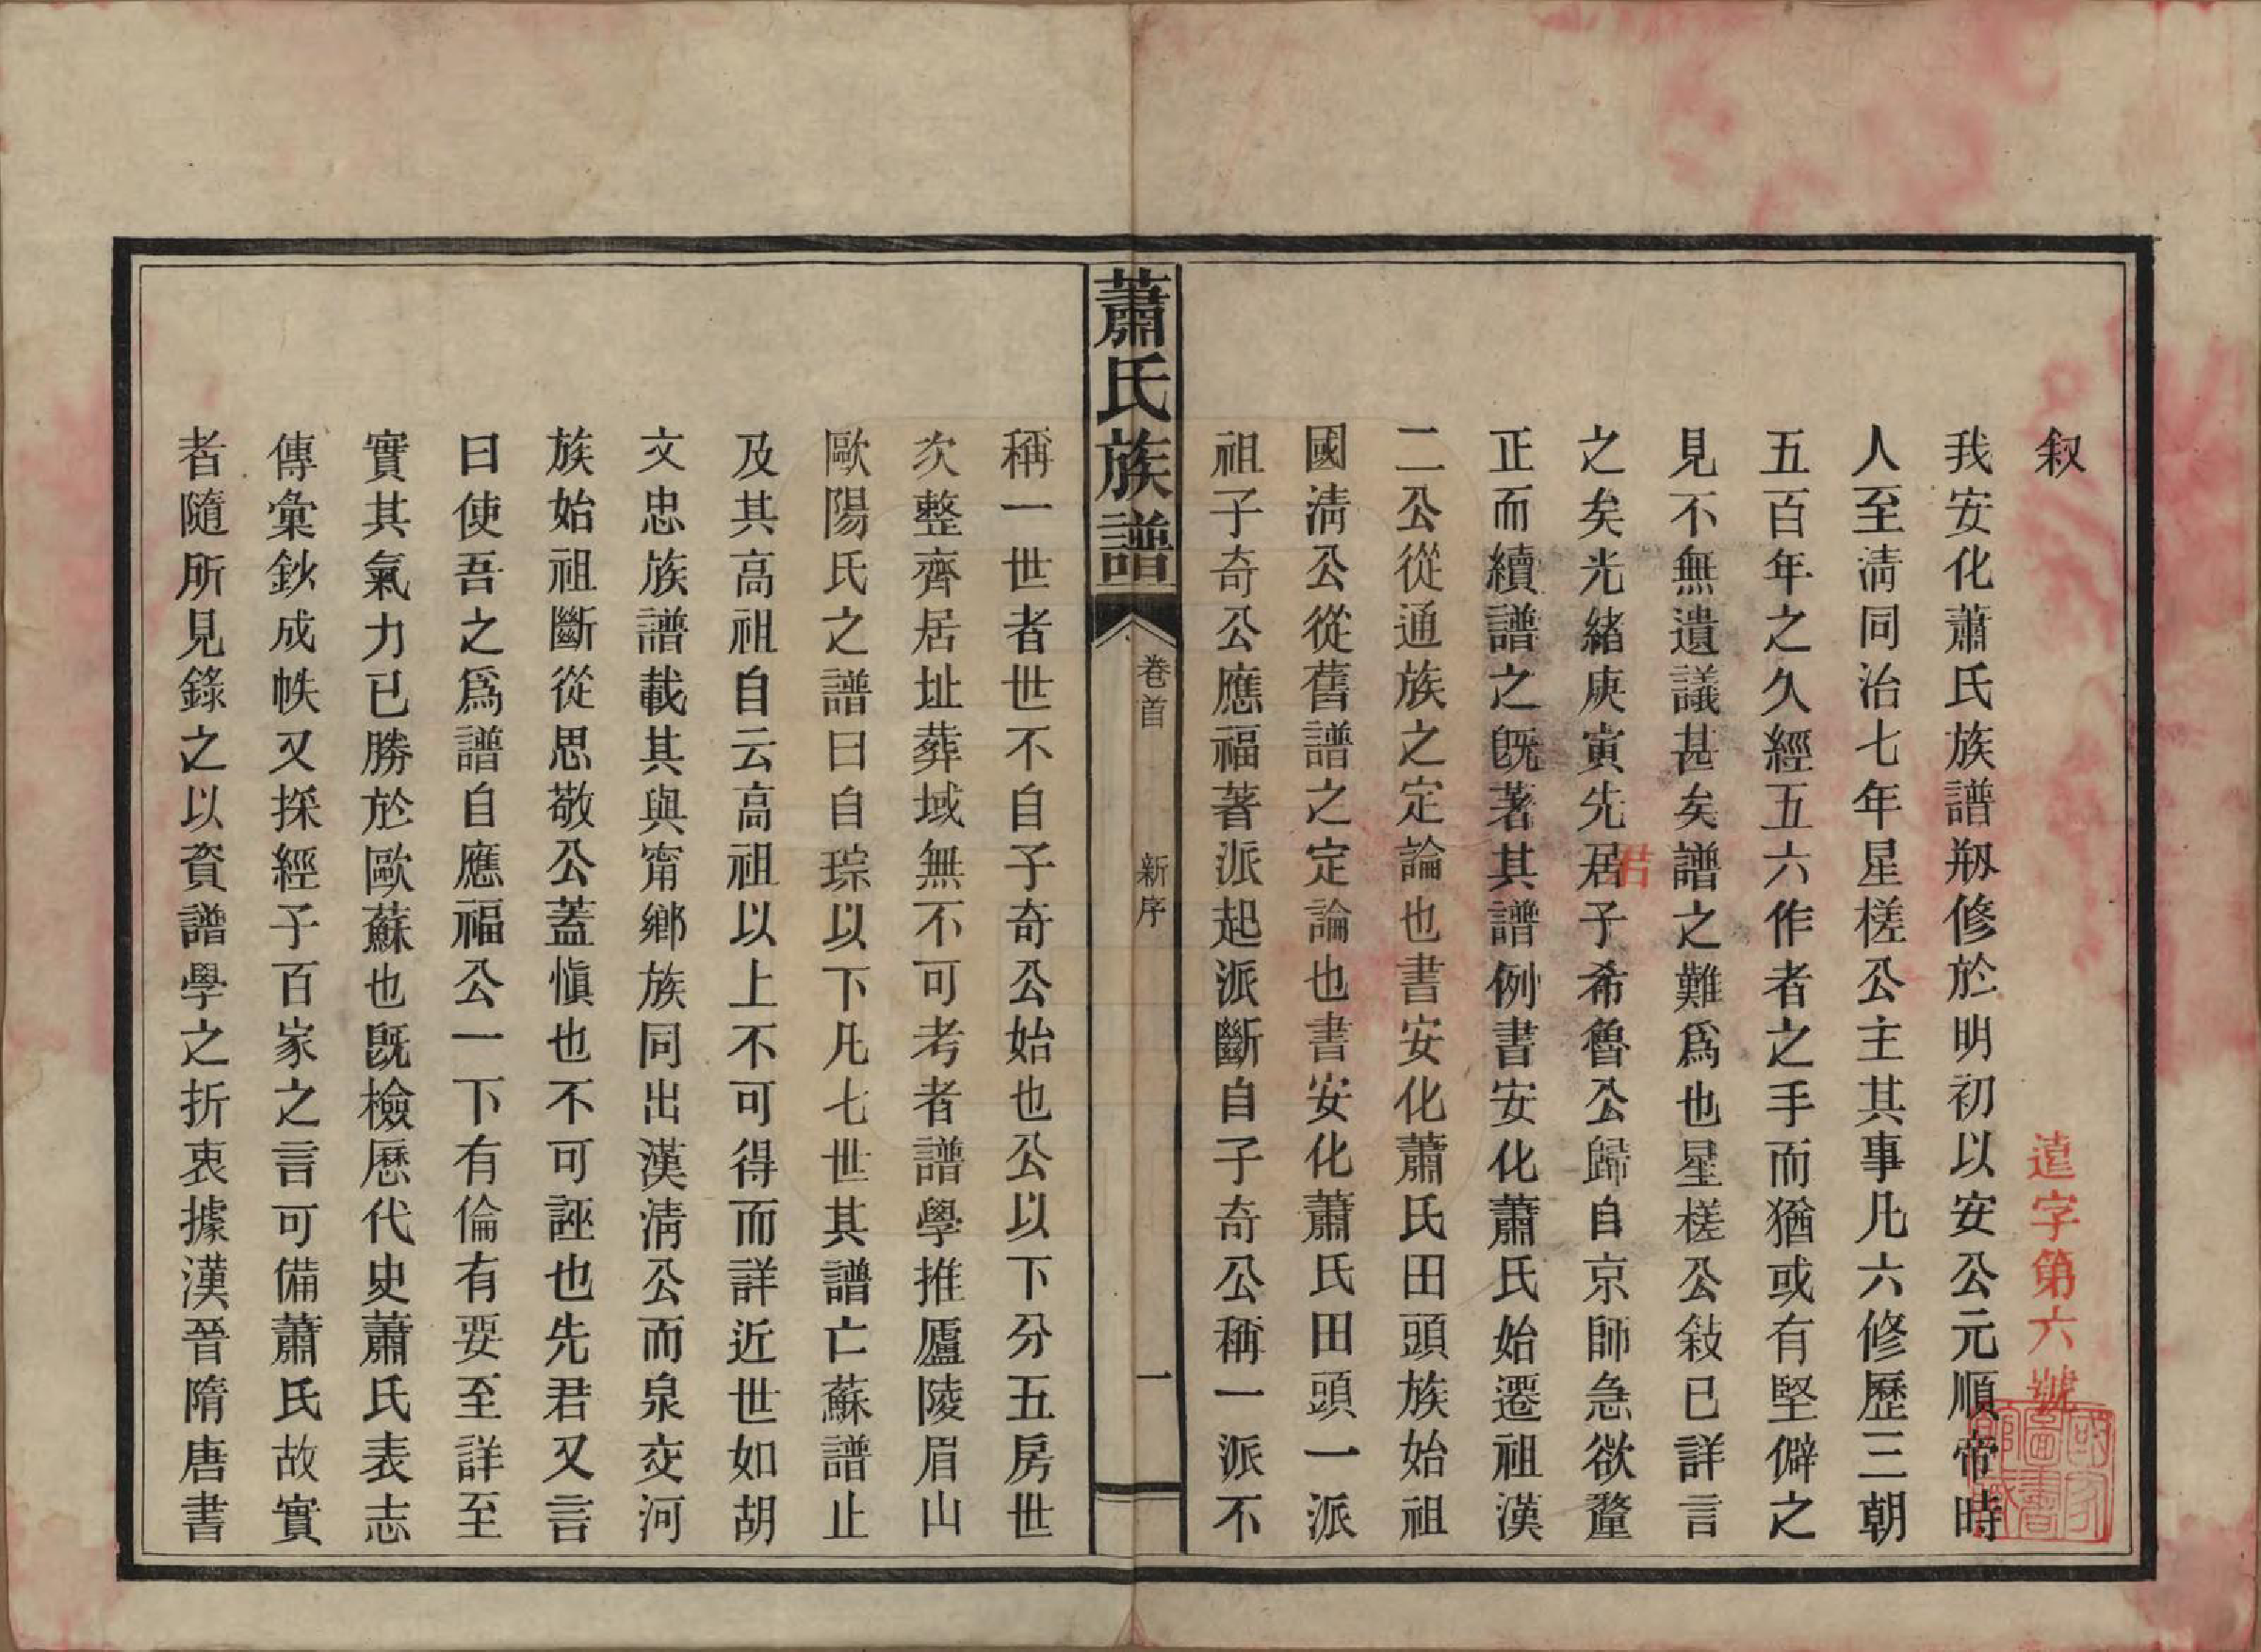 叙
遠字第六號
國家圖書館藏
我安化蕭氏族譜刱修於明初以安公元順帝時
人至淸同治七年星槎公主其事凡六修歷三朝
五百年之久經五六作者之手而猶或有堅僻之
見不無遺議甚矣譜之難爲也星槎公敍已詳言
君
之矣光緒庚寅先居子希魯公歸自京師急欲釐
正而續譜之旣著其譜例書安化蕭氏始遷祖漢
二公從通族之定論也書安化蕭氏田頭族始祖
國淸公從舊譜之定論也書安化蕭氏田頭一派
祖子奇公應福著派起派斷自子奇公稱一派不
蕭氏族譜
卷首
新序
一
稱一世者世不自子奇公始也公以下分五房世
次整齊居址葬域無不可考者譜學推廬陵眉山
歐陽氏之譜曰自琮以下凡七世其譜亡蘇譜止
及其高祖自云高祖以上不可得而詳近世如胡
文忠族譜載其與甯鄉族同出漢淸公而泉交河
族始祖斷從思敬公蓋愼也不可誣也先君又言
曰使吾之爲譜自應福公一下有倫有要至詳至
實其氣力已勝於歐蘇也旣檢厯代史蕭氏表志
傳彙鈔成帙又採經子百家之言可備蕭氏故實
者隨所見錄之以資譜學之折衷據漢晉隋唐書